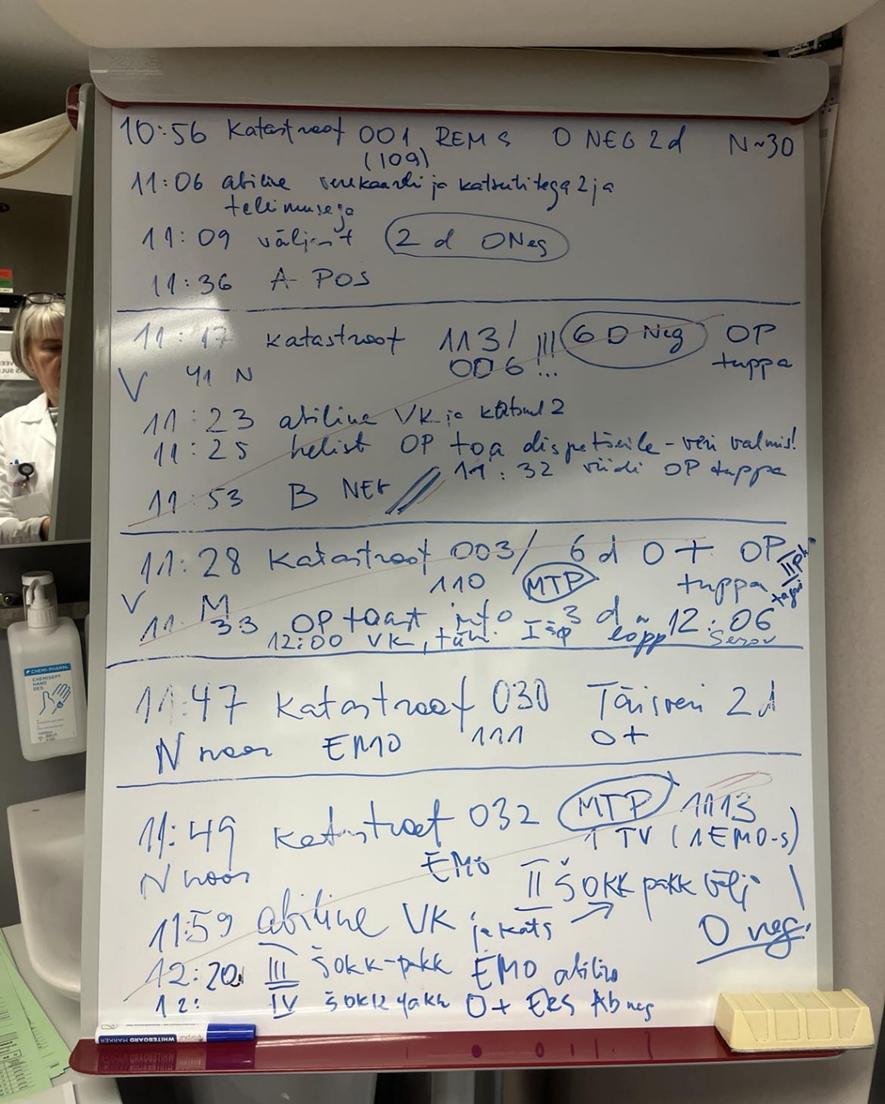 10:56 Katastroof 001 REMS O NEG 2d N~30
(109)
11:06 abiline verekaardi ja katsutitega 2 ja
tellimusega
11:09 väljast 2 d O Neg
11:36 A POS
11:17 Katastroof 113/ !!! 6 O Neg OP
006 ... tuppa
V 41 N
11:23 abiline VK ja katsut 2
11:25 helist OP toa dispetšerile - veri valmis!
11:32 viidi OP tuppa
11:53 B NEG
11:28 Katastroof 003/ 6 d O+ OP
110 MTP tuppa
V M
11: 33 OP toast info 3 d
12:00 VK, lõpp 12:06
11:47 Katastroof 030 Täisveri 2d
N noor EMO 111 O+
11:49 Katastroof 032 MTP 1113
1 TV (1 EMO-s)
N noor EMO
II ŠOKK pakk välj
11:59 abiline VK ja kats → O neg!
12:20 III šokk-pakk EMO abiline
12: IV šokk pakk O+ Ers AB neg
CHEMI-PHARM
CHEMISEPT
HAND
DES
WHITEBOARD
MARKER